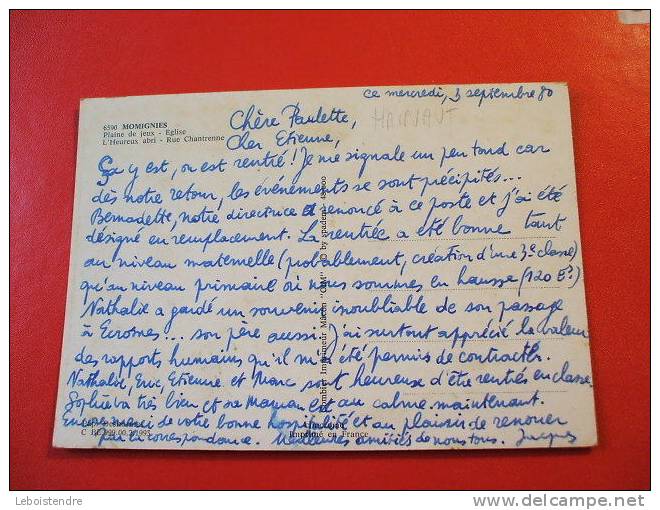 ce mercredi, 3 septembre 80
6590 MOMIGNIES
Plaine de jeux - Eglise
L'Heureux abri - Rue Chantrenne
HAINAUT
Chère Paulette,
Cher Etienne,
Ça y est, on est rentré! Je me signale un peu tard car
dès notre retour, les événements se sont précipités...
Bernadette, notre directrice a renoncé à ce poste et j'ai été
désigné en remplacement. La rentrée a été bonne tant
au niveau maternelle (probablement, création d'une 3e classe)
qu'au niveau primaire où nous sommes en hausse (120 Es)
Nathalie a gardé un souvenir inoubliable de son passage
à ... son père aussi. J'ai surtout apprécié la valeur
des rapports humains qu'il m'a été permis de contracter.
Nathalie, Eric, Etienne et Marc sont heureux d'être rentrés en classe.
Sophie va très bien et sa Maman est au calme maintenant.
Encore merci de votre bonne hospitalité et au plaisir de renouer
par la correspondance. Meilleures amitiés de nous tous. Jacques
Imprimé en France
Leboistendre
www.delcampe.net